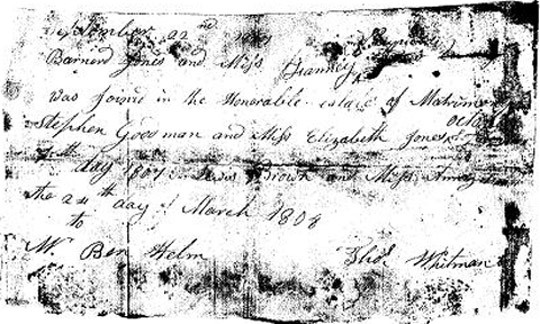 September 22nd
Barnerd Jones and Miss Franney
was joined in the Honorable estate of Matrimony
Stephen Goodman and Miss Elizabeth Jones
day 1807 Brown and Miss
the 24th day of March 1808
to
Mr Ben Helm Thos Whitman